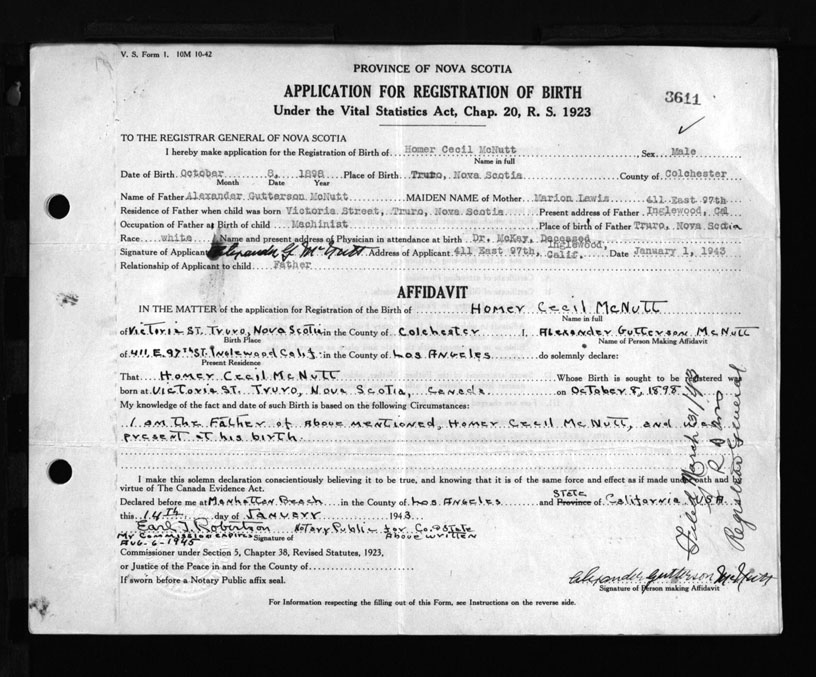 V. S. Form 1. 10M 10-42
PROVINCE OF NOVA SCOTIA
APPLICATION FOR REGISTRATION OF BIRTH
3611
Under the Vital Statistics Act, Chap. 20, R. S. 1923
TO THE REGISTRAR GENERAL OF NOVA SCOTIA
I hereby make application for the Registration of Birth of Homer Cecil McNutt Sex Male
Name in full
Date of Birth October 8, 1898 Place of Birth Truro, Nova Scotia County of Colchester
Month Date Year
Name of Father Alexander Gutterson McNutt MAIDEN NAME of Mother Marion Lewis 411 East 97th
Residence of Father when child was born Victoria Street, Truro, Nova Scotia Present address of Father Inglewood, Cal
Occupation of Father at Birth of child Machinist Place of birth of Father Truro, Nova Scotia
Race white Name and present address of Physician in attendance at birth Dr. McKay, Deceased
Inglewood,
Signature of Applicant Alexander G McNutt Address of Applicant 411 East 97th, Calif. Date January 1, 1943
Relationship of Applicant to child Father
AFFIDAVIT
IN THE MATTER of the application for Registration of the Birth of Homer Cecil McNutt
Name in full
of Victoria St. Truro, Nova Scotia in the County of Colchester I, Alexander Gutterson McNutt
Birth Place Name of Person Making Affidavit
of 411 E. 97th St. Inglewood Calif. in the County of Los Angeles do solemnly declare:
Present Residence
That Homer Cecil McNutt Whose Birth is sought to be registered was
born at Victoria St. Truro, Nova Scotia, Canada on October 8, 1898
My knowledge of the fact and date of such Birth is based on the following Circumstances:
I am the Father of above mentioned, Homer Cecil McNutt, and was
present at his birth.
I make this solemn declaration conscientiously believing it to be true, and knowing that it is of the same force and effect as if made under oath and by
virtue of The Canada Evidence Act.
STATE
Declared before me at Manhattan Beach in the County of Los Angeles and Province of California USA
this 14th day of January 1943
Earl J. Robertson Notary Public for Co. & State
My Commission expires Signature of above written
Aug-6-1945
Commissioner under Section 5, Chapter 38, Revised Statutes, 1923,
or Justice of the Peace in and for the County of
If sworn before a Notary Public affix seal.
Alexander Gutterson McNutt
Signature of Person making Affidavit
For Information respecting the filling out of this Form, see Instructions on the reverse side.
Filed March 31/43
Registrar General